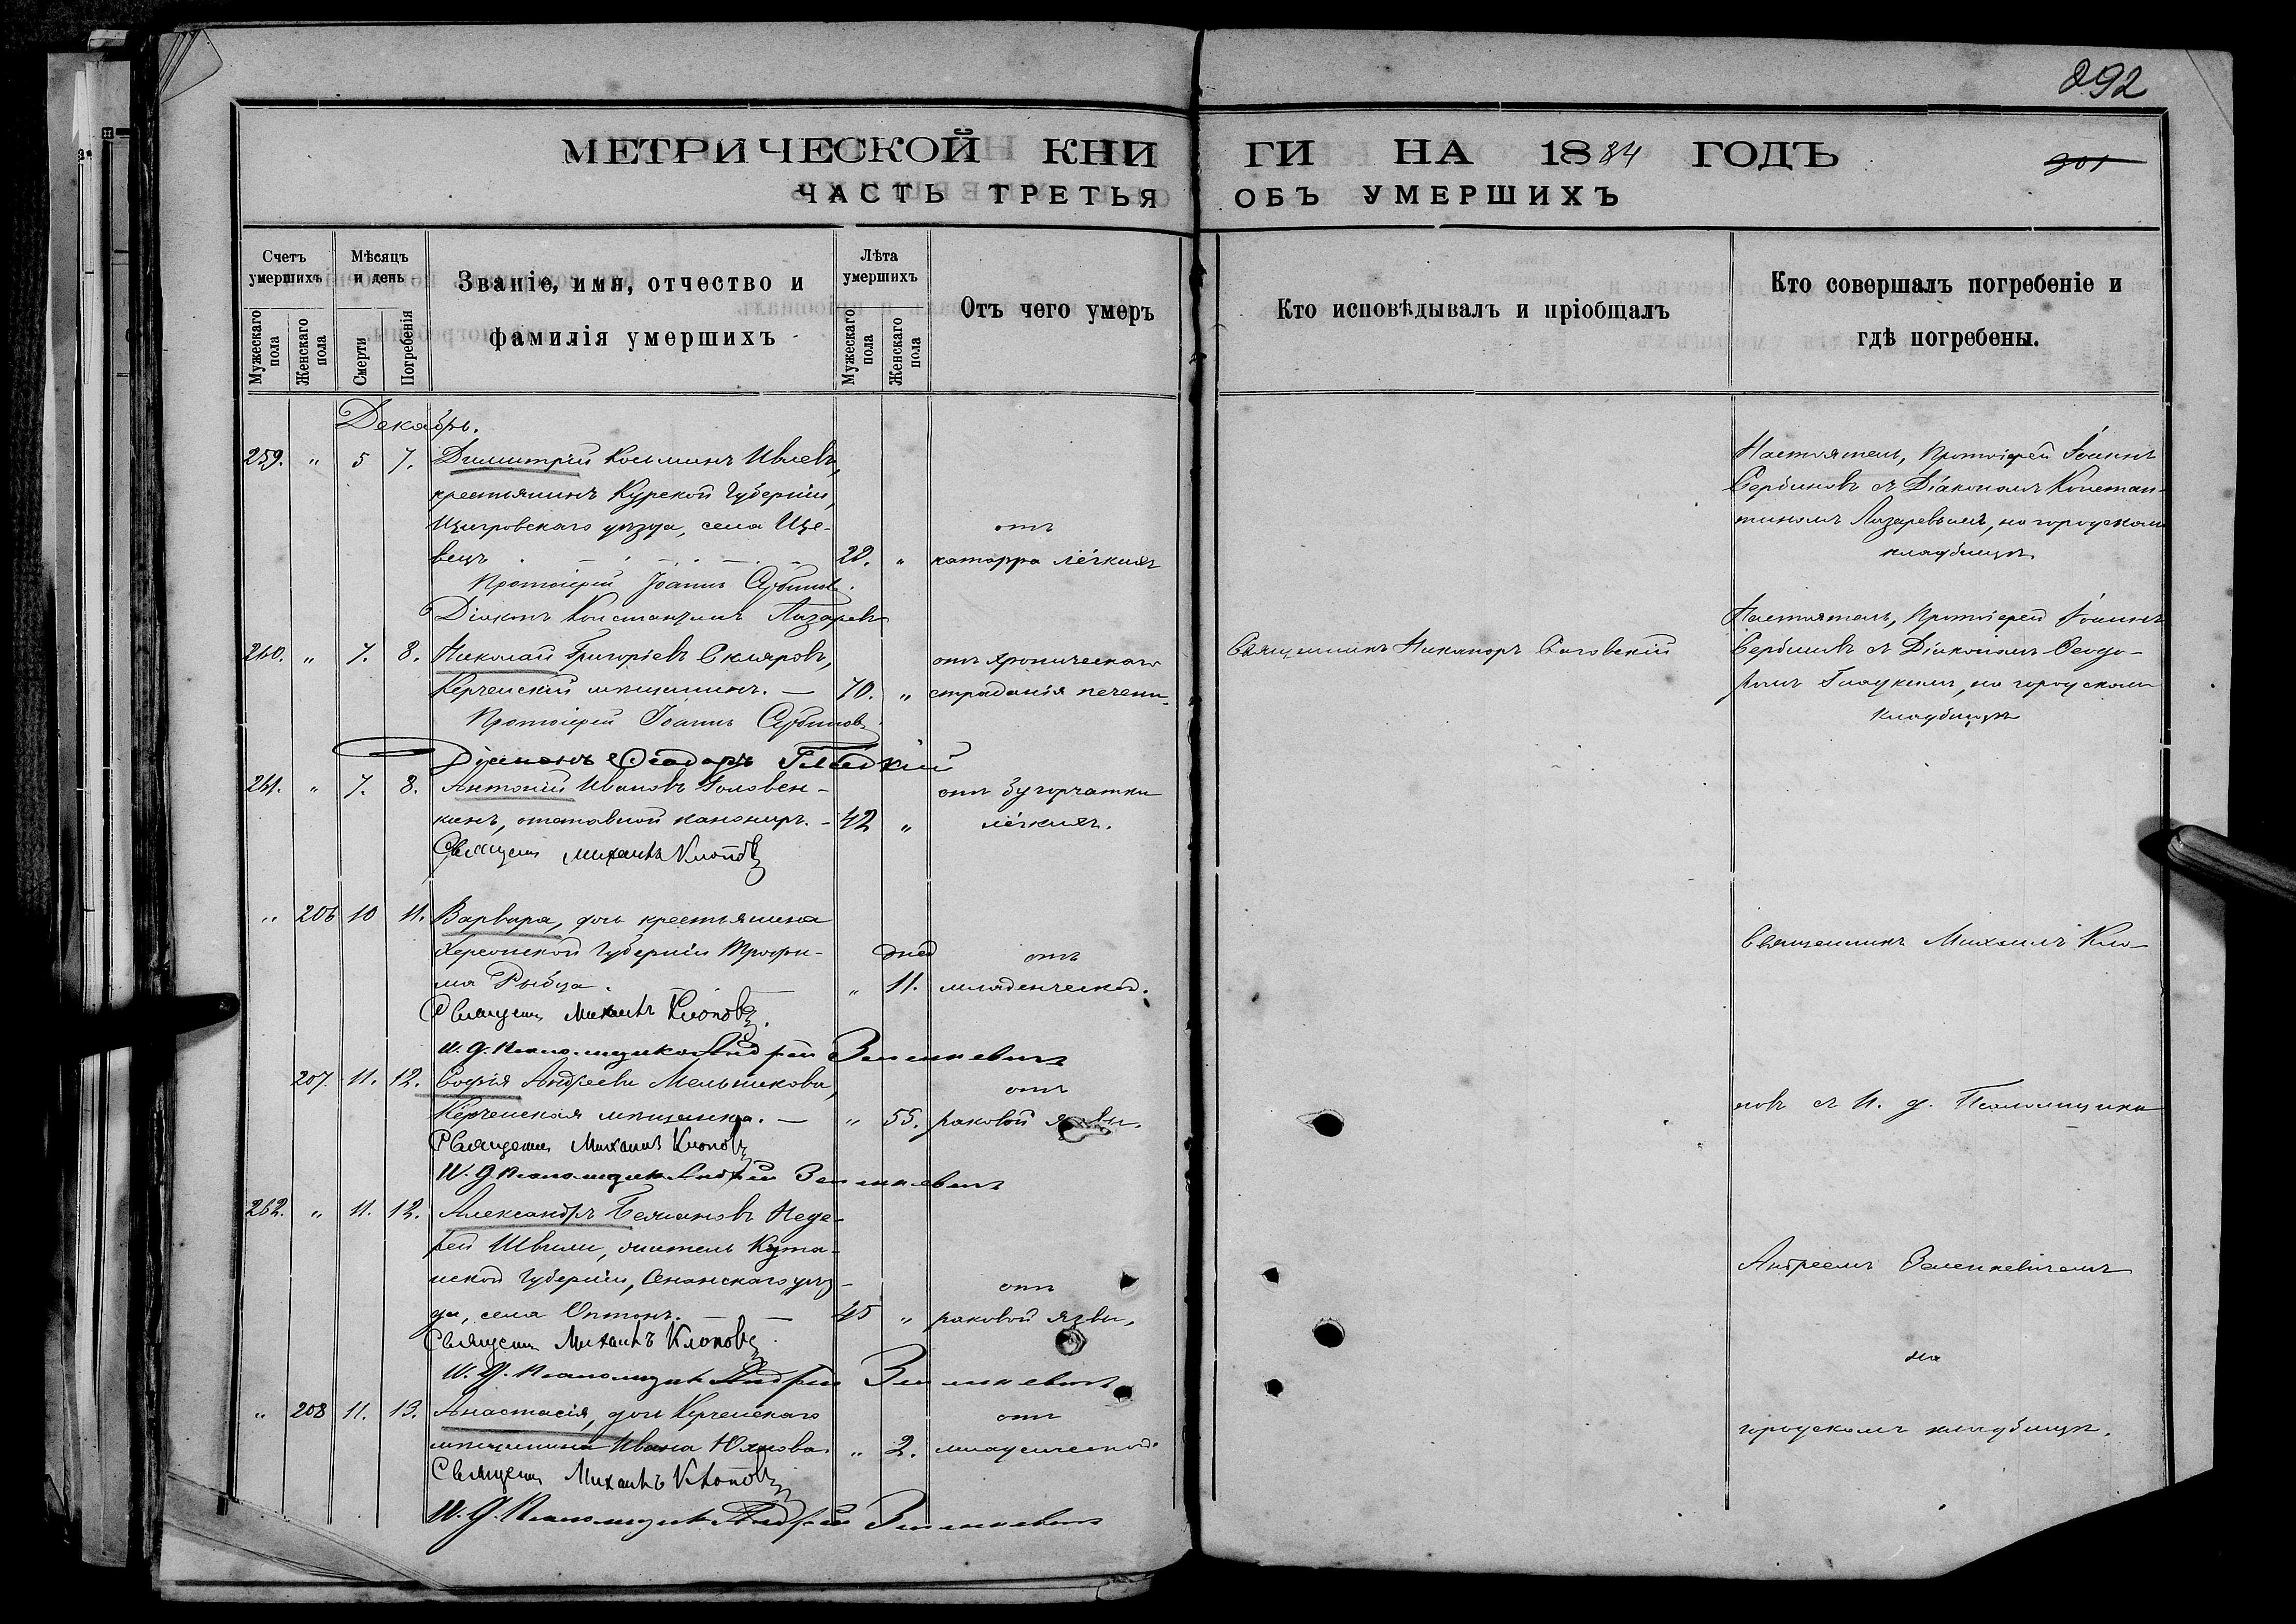 292
МЕТРИЧЕСКОЙ КНИ
ГИ НА 1884 ГОДЪ
301
ЧАСТЬ ТРЕТЬЯ
ОБЪ УМЕРШИХЪ
Счетъ умершихъ
Мужескаго пола
Женскаго пола
Мѣсяцъ и день
Смерти
Погребенія
Званіе, имя, отчество и
фамилія умершихъ
Лѣта умершихъ
Мужескаго пола
Женскаго пола
Отъ чего умеръ
Кто исповѣдывалъ и пріобщалъ
Кто совершалъ погребеніе и
гдѣ погребены.
Декабрь.
259. " 5 7. Димитрій Косьминъ Ивлевъ,
крестьянинъ Курской Губерніи,
Щигровскаго уѣзда, села Ще- отъ
вецъ 22. " катарра лёгкихъ
Протоіерей Іоаннъ Сербиновъ.
Діаконъ Константинъ Лазаревъ
Настоятель, Протоіерей Іоаннъ
Сербиновъ съ Діакономъ Констан-
тиномъ Лазаревымъ, на городскомъ
кладбищѣ.
260. " 7. 8. Николай Григоріевъ Скляровъ, отъ хроническаго
Керченскій мѣщанинъ. — 70. " страданія печени.
Протоіерей Іоаннъ Сербиновъ.
Діаконъ Ѳеодоръ Гладкій
Священникъ Никаноръ
Настоятель, Протоіерей Іоаннъ
Сербиновъ съ Діакономъ Ѳеодо-
ромъ Гладкимъ, на городскомъ
кладбищѣ
261. " 7. 8. Антоній Ивановъ Головен- отъ бугорчатки
кинъ, отставной канониръ. - 42 " лёгкихъ.
Священ Михаилъ Клоповъ
" 206 10 11. Варвара, дочь крестьянина
Херсонской Губерніи Трофи- дней отъ
ма Рыбца. " 11. младенческой.
Священ Михаилъ Клоповъ.
И. д. Псаломщика Андрей Зенькевичъ
207. 11. 12. Софія Андреева Мельникова, отъ
Керченская мѣщанка. — " 55. раковой язвы.
Священ Михаилъ Клоповъ
И. д. Псаломщика Андрей Зенькевичъ
262. " 11. 12. Александръ Бежановъ Неде-
рей Швили, житель Кута-
иской Губерніи, уѣз- отъ
да, села 45 " раковой язвы.
Священ Михаилъ Клоповъ.
И. д. Псаломщика Андрей Зенькевичъ
" 208 11. 13. Анастасія, дочь Керченскаго отъ
мѣщанина Ивана " 2. младенческой.
Священ Михаилъ Клоповъ
И. д. Псаломщика Андрей Зенькевичъ
Священникъ Михаилъ Кло-
повъ съ И. д. Псаломщика
Андреемъ Зенькевичемъ
на
городскомъ кладбищѣ.